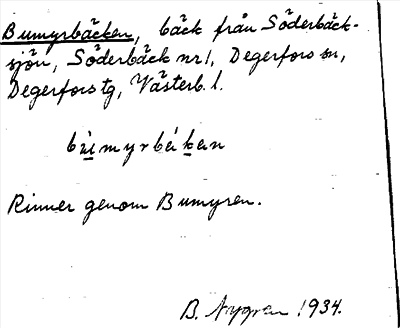 Bumyrbäcken, bäck från Söderbäck-
sjön, Söderbäck nr 1, Degerfors sn,
Degerfors tg, Västerb. l.
bu̠i̠myrbäḵen
Rinner genom Bumyren.
B. Nygren 1934.